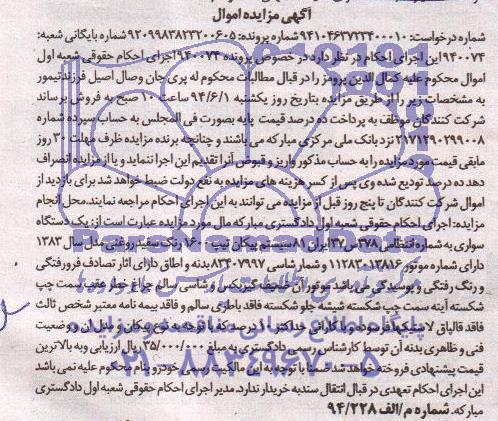 آگهی مزایده اموال
شماره درخواست: ۹۴۱۰۴۶۳۷۲۳۴۰۰۰۱۰ شماره پرونده: ۹۲۰۹۹۸۳۸۲۳۲۰۰۶۰۵ شماره بایگانی شعبه:
۹۴۰۰۷۴ این اجرای احکام در نظر دارد در خصوص پرونده ۹۴۰۰۷۳ اجرای احکام حقوقی شعبه اول
اموال محکوم علیه کمال الدین پرومز را در قبال مطالبات محکوم له پری جان وصال اصیل فرزند تیمور
به مشخصات زیر را از طریق مزایده بتاریخ روز یکشنبه ۹۴/۶/۱ ساعت ۱۰ صبح به فروش برساند
شرکت کنندگان موظف به پرداخت ده درصد قیمت پایه بصورت فی المجلس به حساب سپرده شماره
۲۱۷۱۲۹۰۲۹۹۰۰۸ نزد بانک ملی مرکزی مبارکه می باشند و چنانچه برنده مزایده ظرف مهلت ۳۰ روز
مابقی قیمت مورد مزایده را به حساب مذکور واریز و قبوض آنرا تقدیم این اجرا ننماید و یا از مزایده انصراف
دهد ده درصد تودیع شده وی پس از کسر هزینه های مزایده به نفع دولت ضبط خواهد شد برای بازدید از
اموال شرکت کنندگان تا پنج روز قبل از مزایده می توانند به این اجرای احکام مراجعه نمایند. محل انجام
مزایده: اجرای احکام حقوقی شعبه اول دادگستری مبارکه مال مورد مزایده عبارت است از: یک دستگاه
سواری به شماره انتظامی ۳۷۸ س ۳۷ ایران ۸۱ سیستم پیکان تیپ ۱۶۰۰ رنگ سفید روغنی مدل سال ۱۳۸۳
دارای شماره موتور ۱۱۲۸۳۰۱۳۸۱۶ و شماره شاسی ۸۳۴۰۷۹۹۷ بدنه و اطاق دارای آثار تصادف فرورفتگی
و رنگ رفتگی و پوسیدگی می باشد موتور آن ضعیف گیربکس و شاسی سالم چراغ خطر عقب سمت چپ
شکسته آینه سمت چپ شکسته شیشه جلو شکسته فاقد باطری سالم و فاقد بیمه نامه معتبر شخص ثالث
فاقد قالپاق لاستیکها فرسوده با کارائی حداکثر ۱۰ درصد که با توجه به نوع پیکان و مدل آن و وضعیت
فنی و ظاهری بدنه آن توسط کارشناس رسمی دادگستری به مبلغ ۳۵/۰۰۰/۰۰۰ ریال ارزیابی و به بالاترین
قیمت پیشنهادی فروخته خواهد شد. ضمنا با توجه به این مالکیت رسمی خودرو بنام محکوم علیه نمی باشد
این اجرای احکام تعهدی در قبال انتقال سند به خریدار ندارد. مدیر اجرای احکام حقوقی شعبه اول دادگستری
مبارکه. شماره م/الف ۹۴/۲۲۸
۰۲۱-۸۸۳۴۹۶۷۰-۵